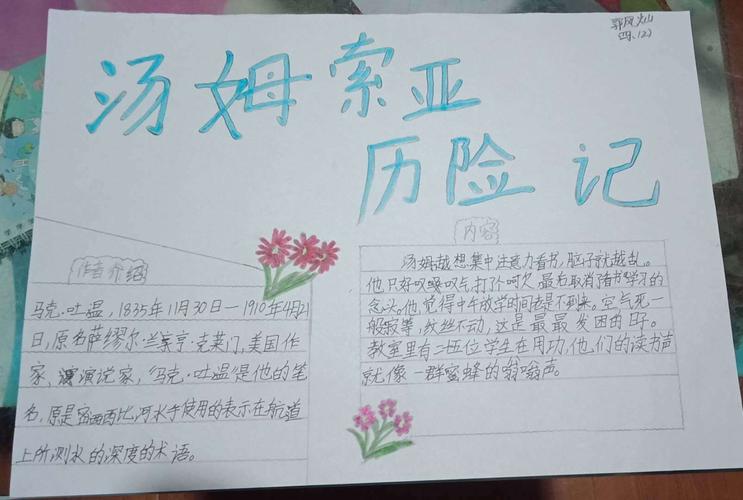 郭风灿
四、(2)
汤姆索亚
历险记
作者介绍
马克·吐温，1835年11月30日—1910年4月21
日，原名萨缪尔·兰亨·克莱门，美国作
家、演说家，“马克·吐温”是他的笔
名，原是密西西比河水手使用的表示在航道
上所测水的深度的术语。
内容
汤姆越想集中注意力看书，脑子就越乱。
他只好叹叹气打个呵欠，最后取消了看书学习的
念头。他觉得中午放学时间老是不到来。空气死一
般寂等，纹丝不动，这是最最发困的日子。
教室里有二十五位学生在用功，他们的读书声
就像一群蜜蜂的嗡嗡声。